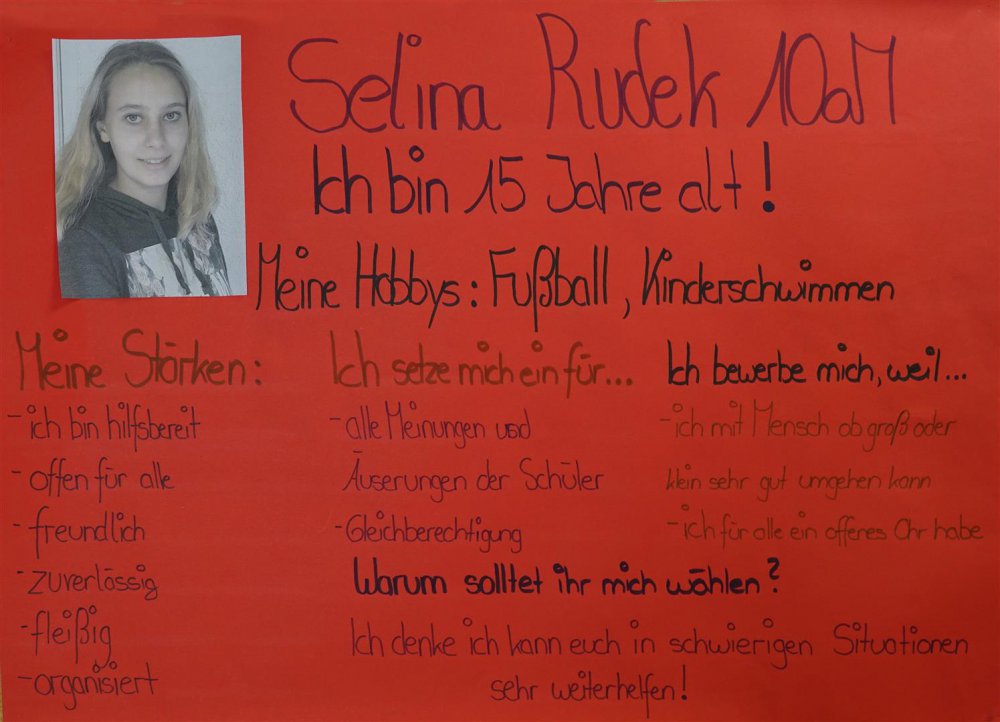 Selina Rudek 10aM
Ich bin 15 Jahre alt!
Meine Hobbys: Fußball, Kinderschwimmen
Meine Stärken:
- ich bin hilfsbereit
- offen für alle
- freundlich
- zuverlässig
- fleißig
- organisiert
Ich setze mich ein für...
- alle Meinungen und
Äuserungen der Schüler
- Gleichberechtigung
Ich bewerbe mich, weil...
- ich mit Mensch ob groß oder
klein sehr gut umgehen kann
- ich für alle ein offenes Ohr habe
Warum solltet ihr mich wählen?
Ich denke ich kann euch in schwierigen Situationen
sehr weiterhelfen!